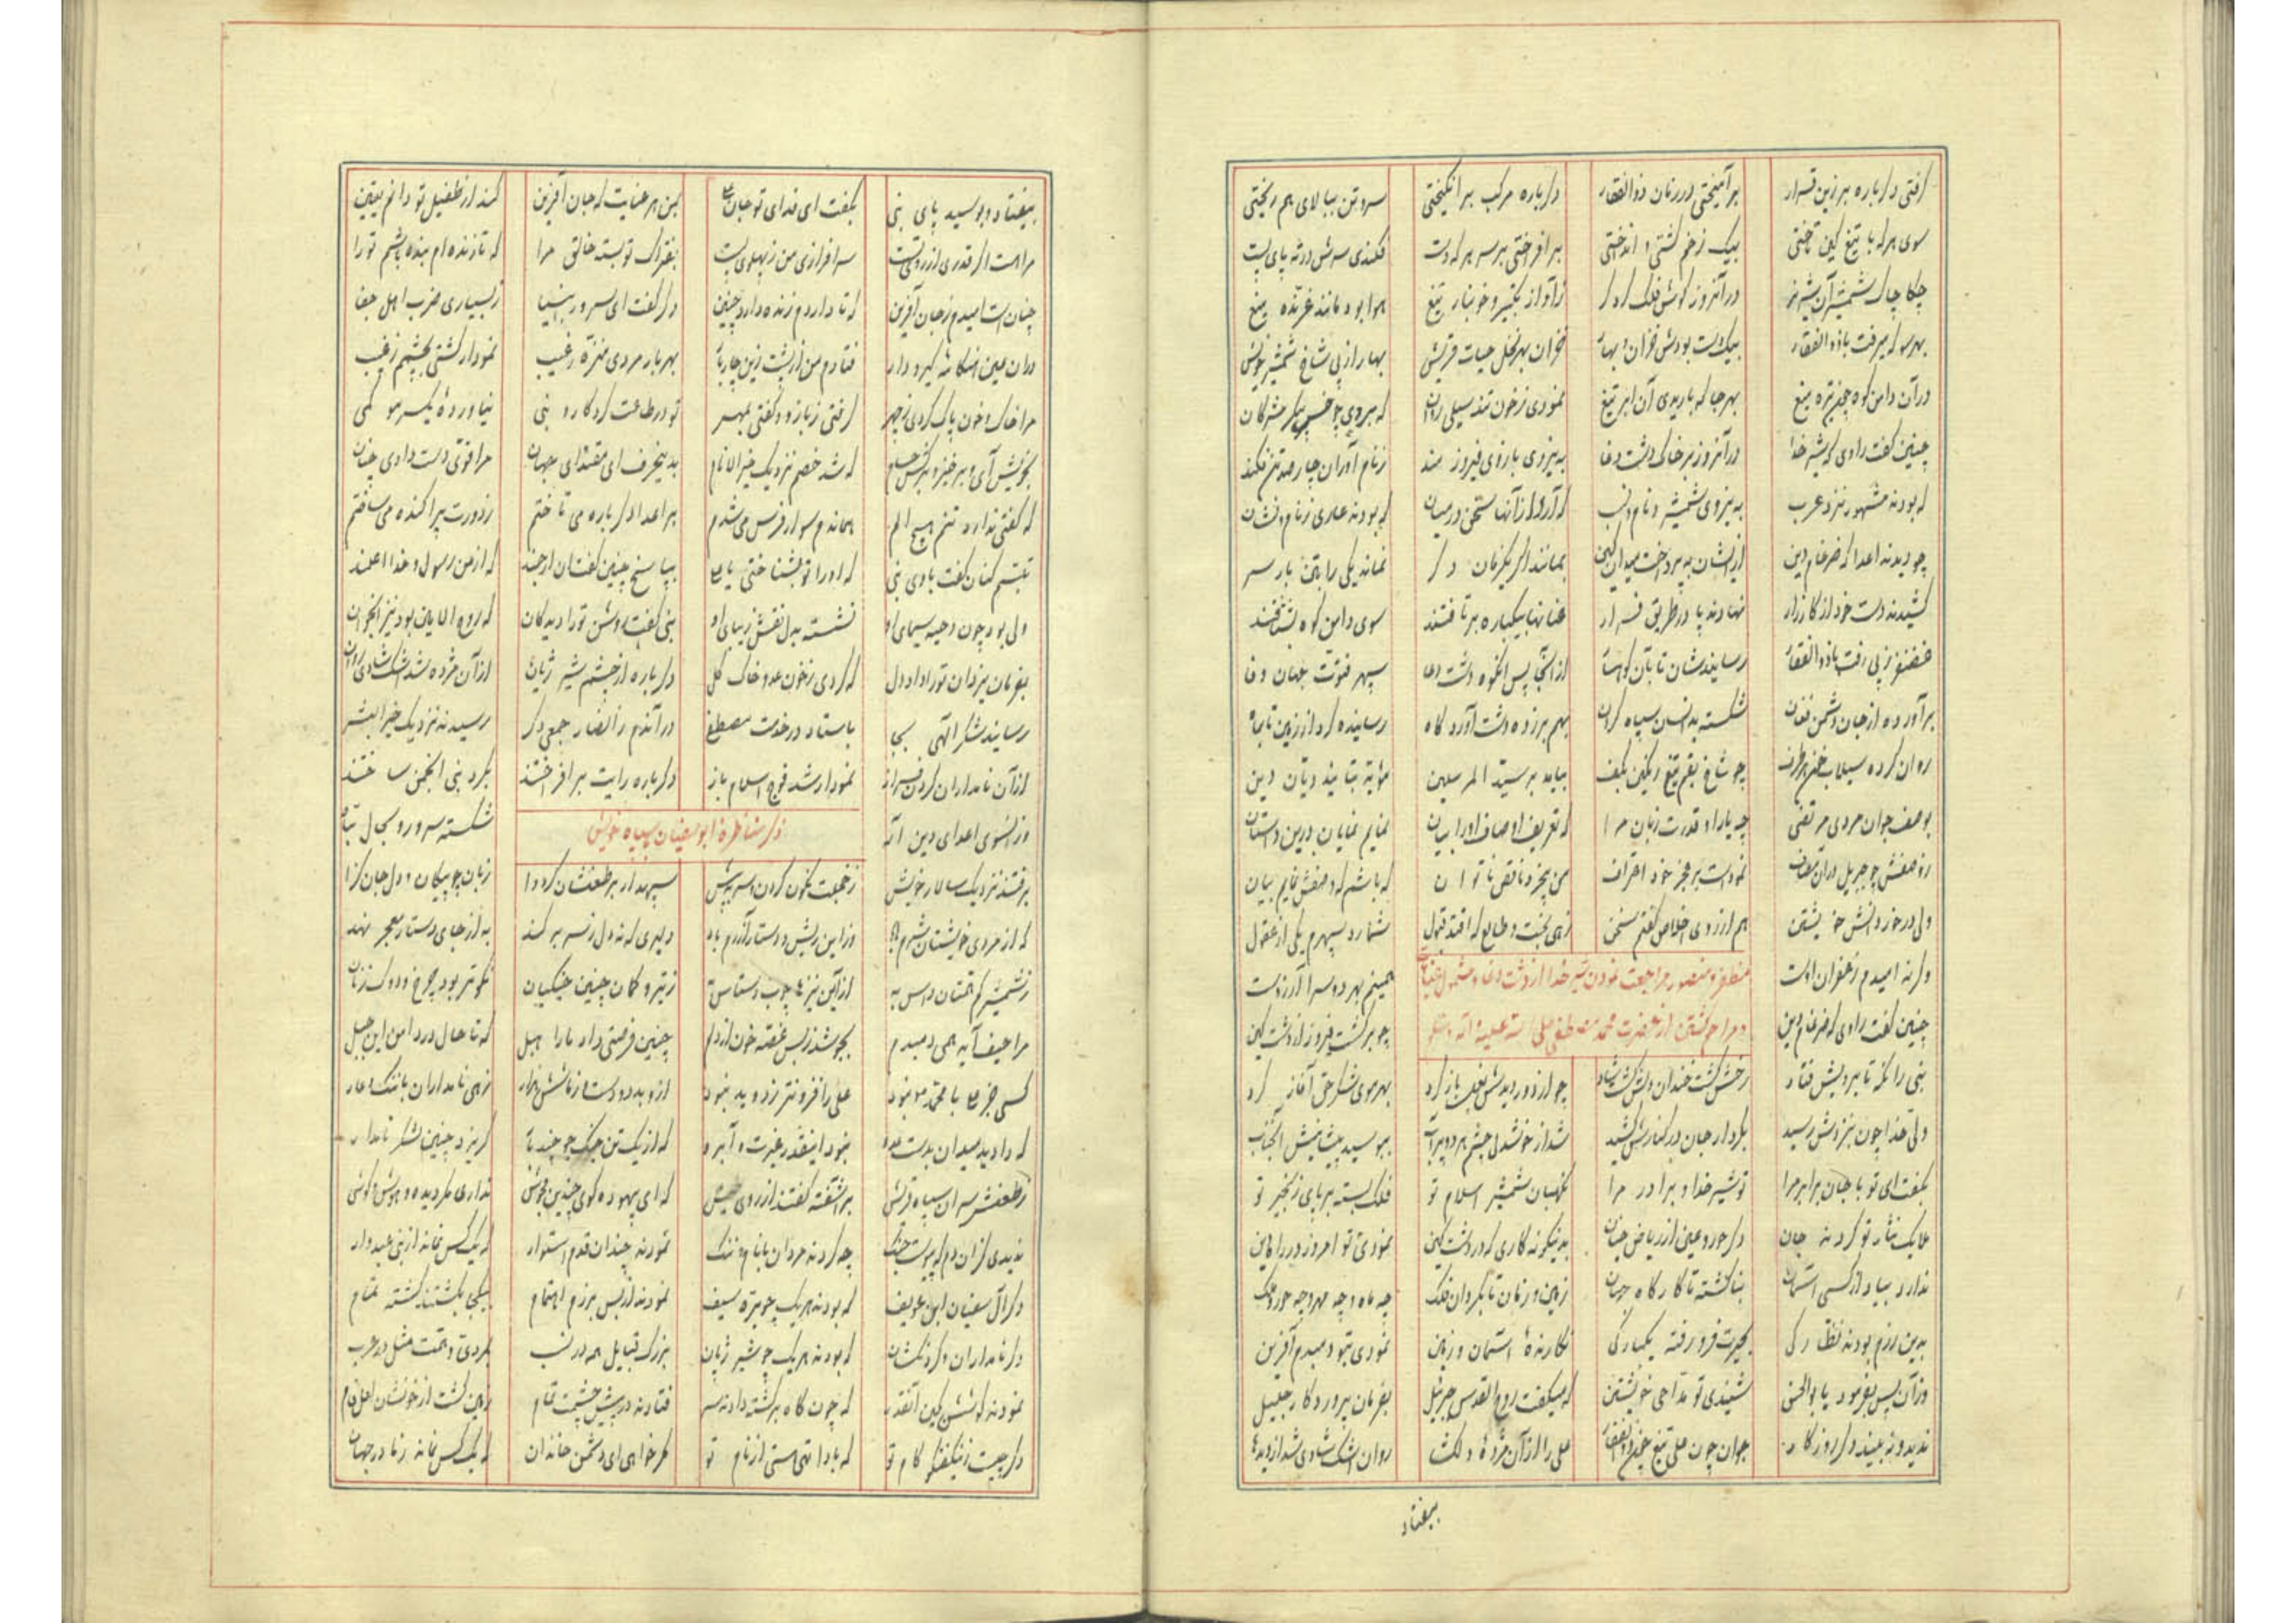 گرفتی دگرباره بر زین قرار برآمیختی در زمان ذوالفقار دگرباره مرکب برانگیختی سر و تن ببالای هم ریختی
سوی هر که با تیغ کین تاختی بیک زخم کشتی و انداختی برافراختی بر سر هر که دست فکندی سرش در ته پای پست
چکاچاک شمشیر آن شیر نر در آنروز گوش فلک کرد کر ز آواز تکبیر و خونبار تیغ هوا بود مانند غرنده میغ
بهر سو که میرفت با ذوالفقار بیکدست بودش خزان و بهار خزان بهر نخل حیات قریش بهار از پی شاخ شمشیر خویش
در آن دامن کوه چون تیره میغ بهر جا که باریدی آن ابر تیغ نمودی ز خون تند سیلی روان که بردی چو خس پیکر مشرکان
چنین گفت راوی که شیر خدا در آنروز بر خاک دشت وغا به نیروی بازوی فیروزمند ز نام آوران چارصد تن فکند
که بودند مشهور نزد عرب به نیروی شمشیر و نام و نسب که بودند عاری ز نام و نشان
چو دیدند اعدا که ضرغام دین ازیشان بپرداخت میدان کین بمانند اگر یکزمان دگر نماند یکی را بتن بار سر
کشیدند دست خود از کارزار نهادند پا در طریق فرار عنانها بیکباره برتافتند سوی دامن کوه بشتافتند
غضنفر ز پی رفت با ذوالفقار رسانیدشان تا بآن کوهسار از آنجا پس انگه دشت وغا سپهر فتوت جهان وفا
برآورده از جان دشمن فغان شکسته بدانسان سپاه گران بهم برزده دشت آوردگاه رسانیده گرد از زمین تا بماه
روان کرده سیلاب خون هر طرف چو شاخ بقم تیغ رنگین بکف بیامد بر سید المرسلین مؤید بتایید دیان دین
بوصف جوانمردی مرتضی چه یارا و قدرت زبان مرا که تعریف اوصاف او را بیان نمایم نمایان درین داستان
ز وصفش چو جبریل در آن مصاف نمودست بر عجز خود اعتراف من بیخرد ناقص ناتوان که باشم که وصفش نمایم بیان
ولی در خور دانش خویشتن هم از روی اخلاص گفتم سخن زهی بخت و طالع که افتد قبول شمارد سپهرم یکی از عقول
مظفر و منصور مراجعت نمودن شیر خدا از دشت وغا و مشمول عنایت
و مراحم گشتن از حضرت محمد مصطفی صلی الله علیه و آله و سلم
وگرنه امیدم ز غفران اوست همینم بهر دو سرا آرزوست
چنین گفت راوی که ضرغام دین چو برگشت فیروز از دشت کین
نبی را نگه تا برویش فتاد رخش گشت خندان دلش گشت شاد چو از دور دیدش بغل باز کرد بهر موی شکر حق آغاز کرد
ولی خدا چون بنزدش رسید بکردار جان در کنارش کشید شد از خوشدلی چشمم هر دو پرآب ببوسید پیشانیش آنجناب
بگفت ای تو با جان برابر مرا تو شیر خدا و برادر مرا نگهبان شمشیر اسلام تو فلک بسته بر پای زنجیر تو
ملایک نثار تو کردند جان دگر حور و عین از ریاض جنان بدینگونه کاری که در دشت کین نمودی تو امروز در راه دین
ندارد بیاد از کسی آسمان بنا گشته تا کارگاه جهان زمین و زمان تا بگردان فلک چه ماه و چه مهر و چه حور و ملک
بدین رزم بودند نظارگی بحیرت فرو رفته یکبارگی نگارنده آسمان و زمین نمودی بتو دمبدم آفرین
وزآن پس بفرمود یا بوالحسن شنیدی تو مداحی خویشتن که میگفت روح القدس جبرئیل بفرمان پروردگار جلیل
ندید و نه بیند دگر روزگار جوان چون علی تیغ چون ذوالفقار علی را از آن مژده دلکشا روان اشک شادی شد از دیدها
بیفتاد
بیفتاد و بوسید پای نبی بگفت ای فدای تو جان علی بمن هر عنایت که جان آفرین کند از طفیل تو دانم یقین
مرا هست اگر قدری از روی تست سرافرازی من ز پهلوی تست بفتراک تو بسته خالق مرا که تا زنده ام بنده باشم تو را
چنان است امیدم ز جان آفرین که تا داردم زنده دارد چنین دگر گفت ای سرور انبیا ز بسیاری ضرب اهل جفا
در آن عین هنگامه گیر و دار فتادم من از پشت زین چار بار بهر بار مردی منزه ز عیب نمودار گشتی بچشمم ز غیب
گرفتی ز بازو و گفتی بمهر تو در طاعت کردگار و نبی نیاورده یکسر مو کمی
بخویش آی و برخیز و برکش حسام که شد خصم نزدیک خیرالانام بدینحرف ای مقتدای جهان مرا قوتی دست دادی چنان
که گفتی ندارد تنم هیچ الم هماندم سوار فرس میشدم بر اعدا دگرباره می تاختم ز دورت پراکنده می ساختم
تبسم کنان گفت با وی نبی که او را تو بشناختی یا علی بپاسخ چنین گفت آن ارجمند که از من رسول و خدا اعلمند
ولی بود چون دحیه سیمای او نشسته بدل نقش زیبای او نبی گفت روشن تو را دیدگان که روح الامین بود نیز آنجوان
بفرمان یزدان تو را داد دل که کردی ز خون عدو خاک گل دگرباره از چشم شیر ژیان از آن مژده شد اشک شادی روان
رسانید شکر الهی بجا باستاد در خدمت مصطفی در آندم ز انصار جمعی دگر رسیدند نزدیک خیرالبشر
از آن نامداران گردن فراز نمودار شد فوج اسلام باز دگرباره رایت برافراختند بگرد نبی انجمن ساختند
ذکر مناظره ابوسفیان بسپاه خویش
وز آنسوی اعدای دین آله شکسته سر و رو بحال تباه
برفتند نزدیک سالار خویش ز خجلت نگون کردن سر به پیش سپهدار بر طعنشان کرد وا زبان چو پیکان و دل جان گزا
که از مردی خویشتان شرم باد وزین ریش و دستار آزرم باد دلیری که نه دل ز سر برکند به از جای دستار معجر نهد
از آن نیزه ها چوب دستاس به ز تیر و کمان چنین جنگیان نکوتر بود چرخ و دوک زنان
مرا حیف آید همی دمبدم بجوشد ز بس غصه خون از دلم چنین فرصتی داد ما را هبل که تا حال در دامن این جبل
کسی جز علی با محمد نبود علی را فزونتر ز دو ید نبود زهی نامداران با ننگ و عار
نبود اینقدر غیرت و آبرو که از یک تن جنگجو چند بار گریزد چنین لشکر نامدار
ز طعنش سران سپاه قریش برآشفته گفتند از روی طیش که ای بیهوده گوی چندین مجوش نداری مگر دیده و هوش و گوش
ندیدی کزان دم که پیوست جنگ چه کردند مردان با نام و ننگ نمودند چندان قدم استوار که یک کس نماند از بنی عبددار
دگر آل سفیان ابن عویف که بودند هر یک چو برنده سیف نمودند از بس برزم اهتمام بیکجای کشتند کشته تمام
دگر نامداران و گردنکشان که بودند هر یک چو شیر ژیان بزرگ قبایل همه در نسب بمردی و همت مثل در عرب
نمودند کوشش بکین آنقدر که چون کاه برگشته دادند سر فتادند در پیش چشمت تمام زمین گشت از خونشان لعل فام
دگر چیست که بادا تهی هستی از نام تو مگر خواهی ای دشمن خاندان که یک کس نماند ز ما در جهان